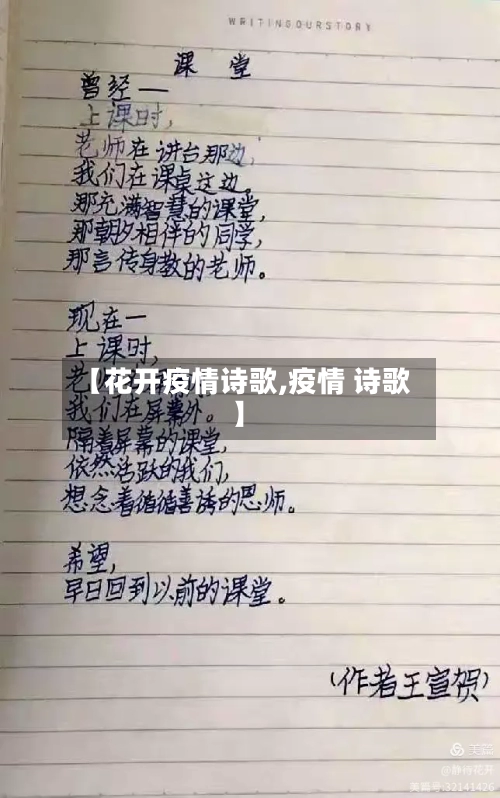 WRITINGOURSTORY
课 堂
曾经一
上课时,
老师在讲台那边,
我们在课桌这边。
那充满智慧的课堂,
那朝夕相伴的同学,
那言传身教的老师。
现在一
上课时,
老
【花开疫情诗歌,疫情 诗歌
】
我们在屏幕外。
隔着屏幕的课堂,
依然活跃的我们,
想念着循循善诱的恩师。
希望,
早日回到以前的课堂。
(作者王宣贺)
美篇
@静待花开
美篇号:32141426